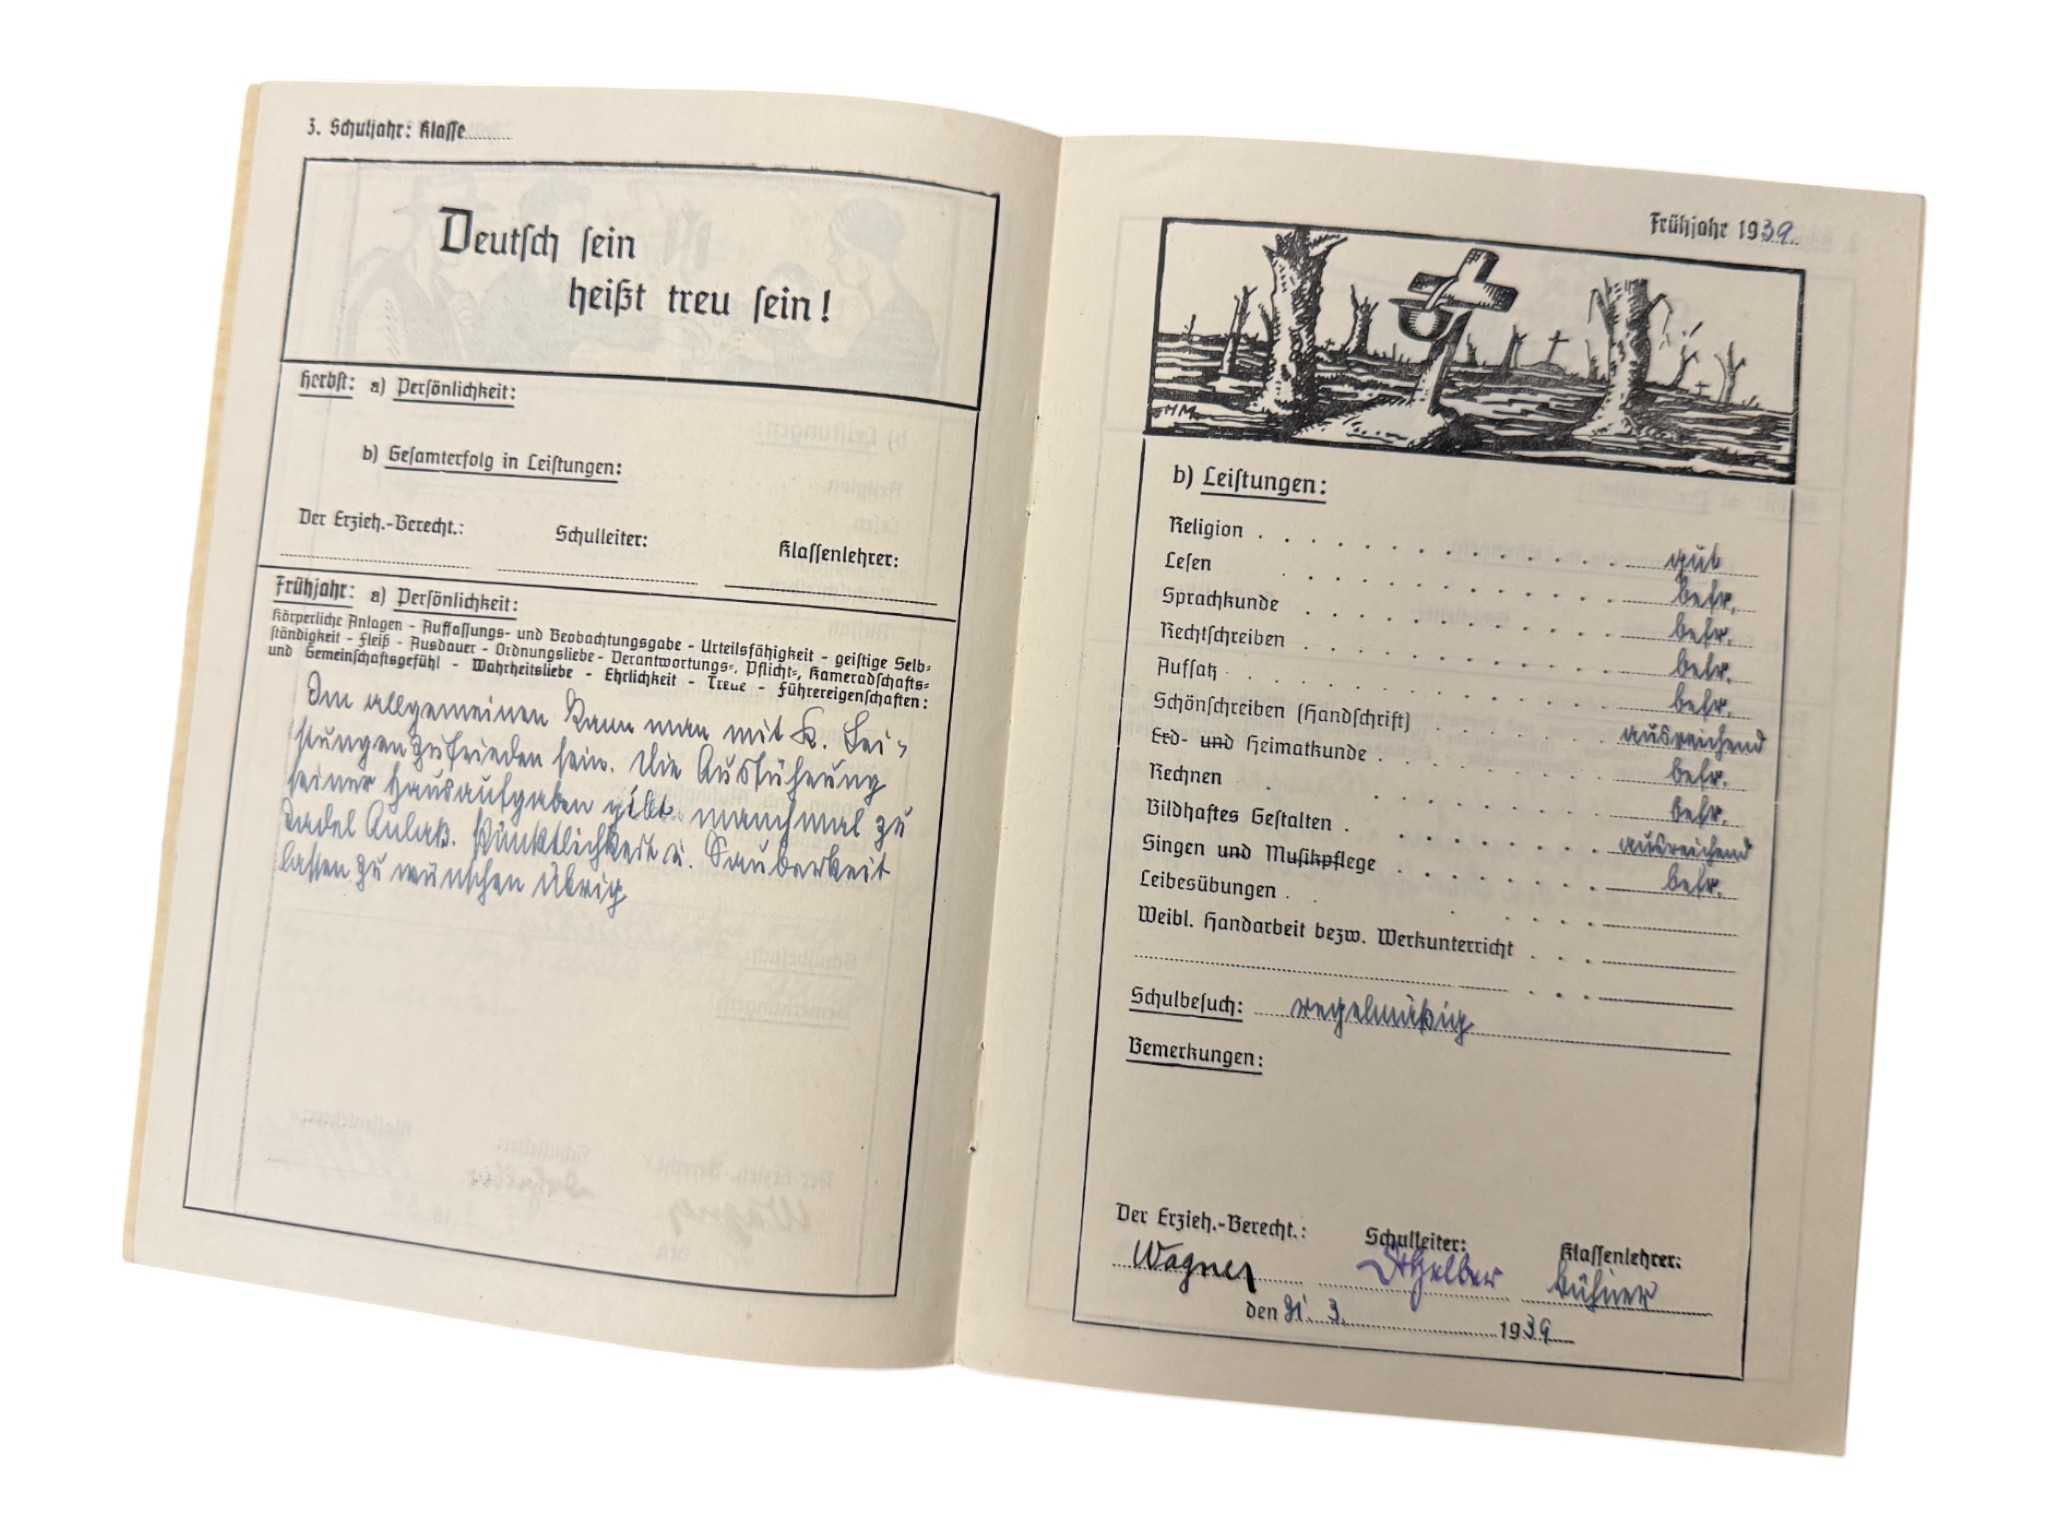 3. Schuljahr: Klasse
Deutsch sein
heißt treu sein!
Herbst: a) Persönlichkeit:
b) Gesamterfolg in Leistungen:
Der Erzieh.-Berecht.: Schulleiter: Klassenlehrer:
Frühjahr: a) Persönlichkeit:
Körperliche Anlagen - Auffassungs- und Beobachtungsgabe - Urteilsfähigkeit - geistige Selb-
ständigkeit - Fleiß - Ausdauer - Ordnungsliebe - Verantwortungs-, Pflicht-, Kameradschafts-
und Gemeinschaftsgefühl - Wahrheitsliebe - Ehrlichkeit - Treue - Führereigenschaften:
Im allgemeinen kann man mit K. Lei-
stungen zufrieden sein. Die Ausführung
seiner Hausaufgaben gibt manchmal zu
Tadel Anlaß. Pünktlichkeit u. Sauberkeit
lassen zu wünschen übrig
Frühjahr 1939.
HM
b) Leistungen:
Religion gut
Lesen befr.
Sprachkunde befr.
Rechtschreiben befr.
Aufsatz befr.
Schönschreiben (Handschrift) ausreichend
Erd- und Heimatkunde befr.
Rechnen befr.
Bildhaftes Gestalten ausreichend
Singen und Musikpflege befr.
Leibesübungen
Weibl. Handarbeit bezw. Werkunterricht
Schulbesuch: regelmäßig
Bemerkungen:
Der Erzieh.-Berecht.: Schulleiter: Klassenlehrer:
Wagner
den 31. 3. 1939